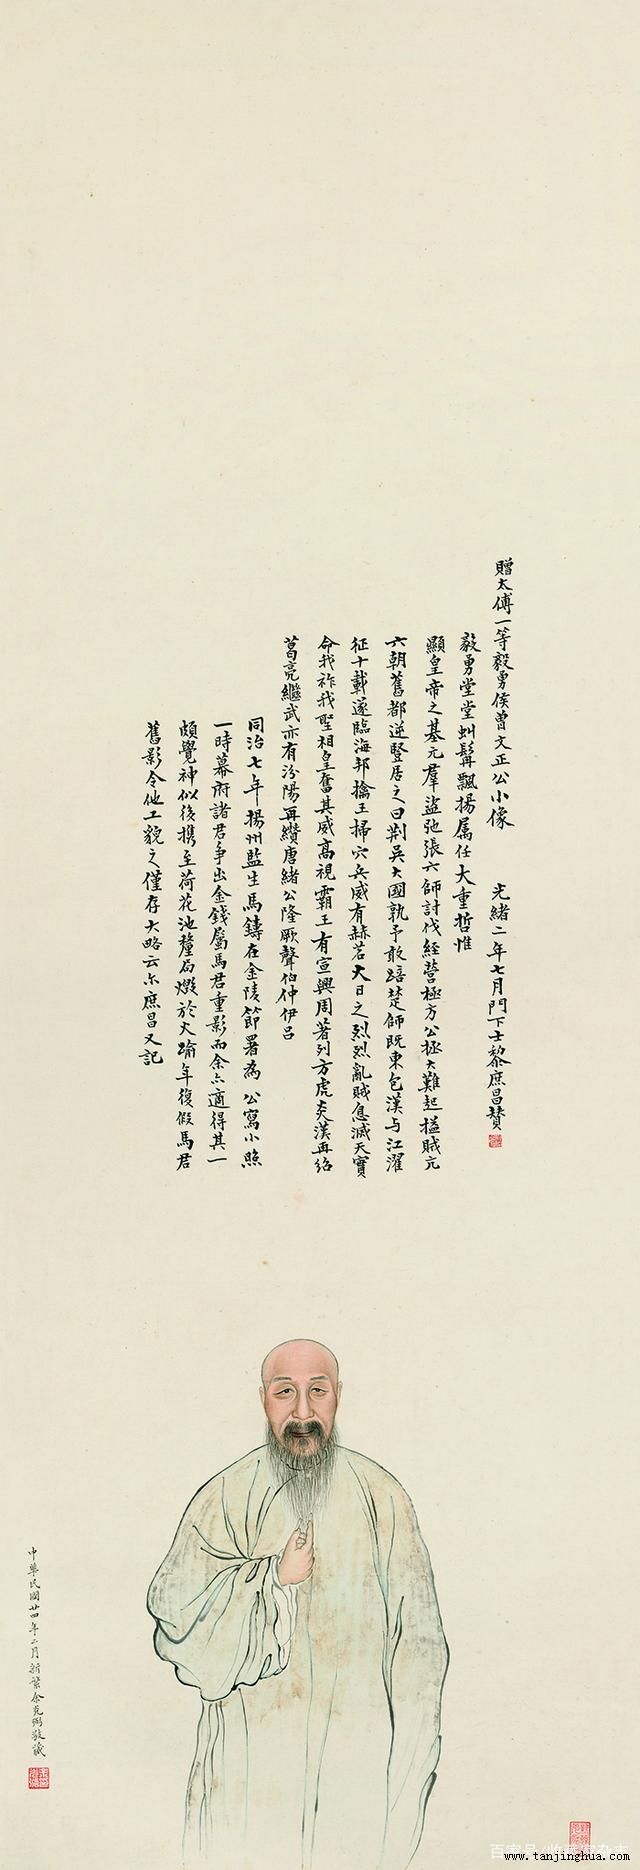 贈太傅一等毅勇侯曾文正公小像　光緒二年七月門下士黎庶昌贊
毅勇堂堂虯髯飄揚屬任大重哲惟
顯皇帝之基元羣盜弛張六師討伐經營極方公拯大難起搤賊亢
六朝舊都逆豎居之曰荆吳大國孰予敢踣楚師既東包漢与江濯
征十載遂臨海邦擒王掃穴兵威有赫若大日之烈烈亂賊息滅天實
命我祚我聖相皇奮其威高視霸王有宣興周著列方虎炎漢再紹
葛亮繼武亦有汾陽再纘唐緒公隆厥聲伯仲伊呂
同治七年揚州監生馬鑄在金陵節署為公寫小照
一時幕府諸君争出金錢屬馬君重影而余亦適得其一
頗覺神似後携至荷花池釐局燬於火踰年復假馬君
舊影令他工貌之僅存大略云尔庶昌又記
中華民國廿四年二月新繁余克弼敬識
百家号/收藏家杂志
www.tanjinghua.com